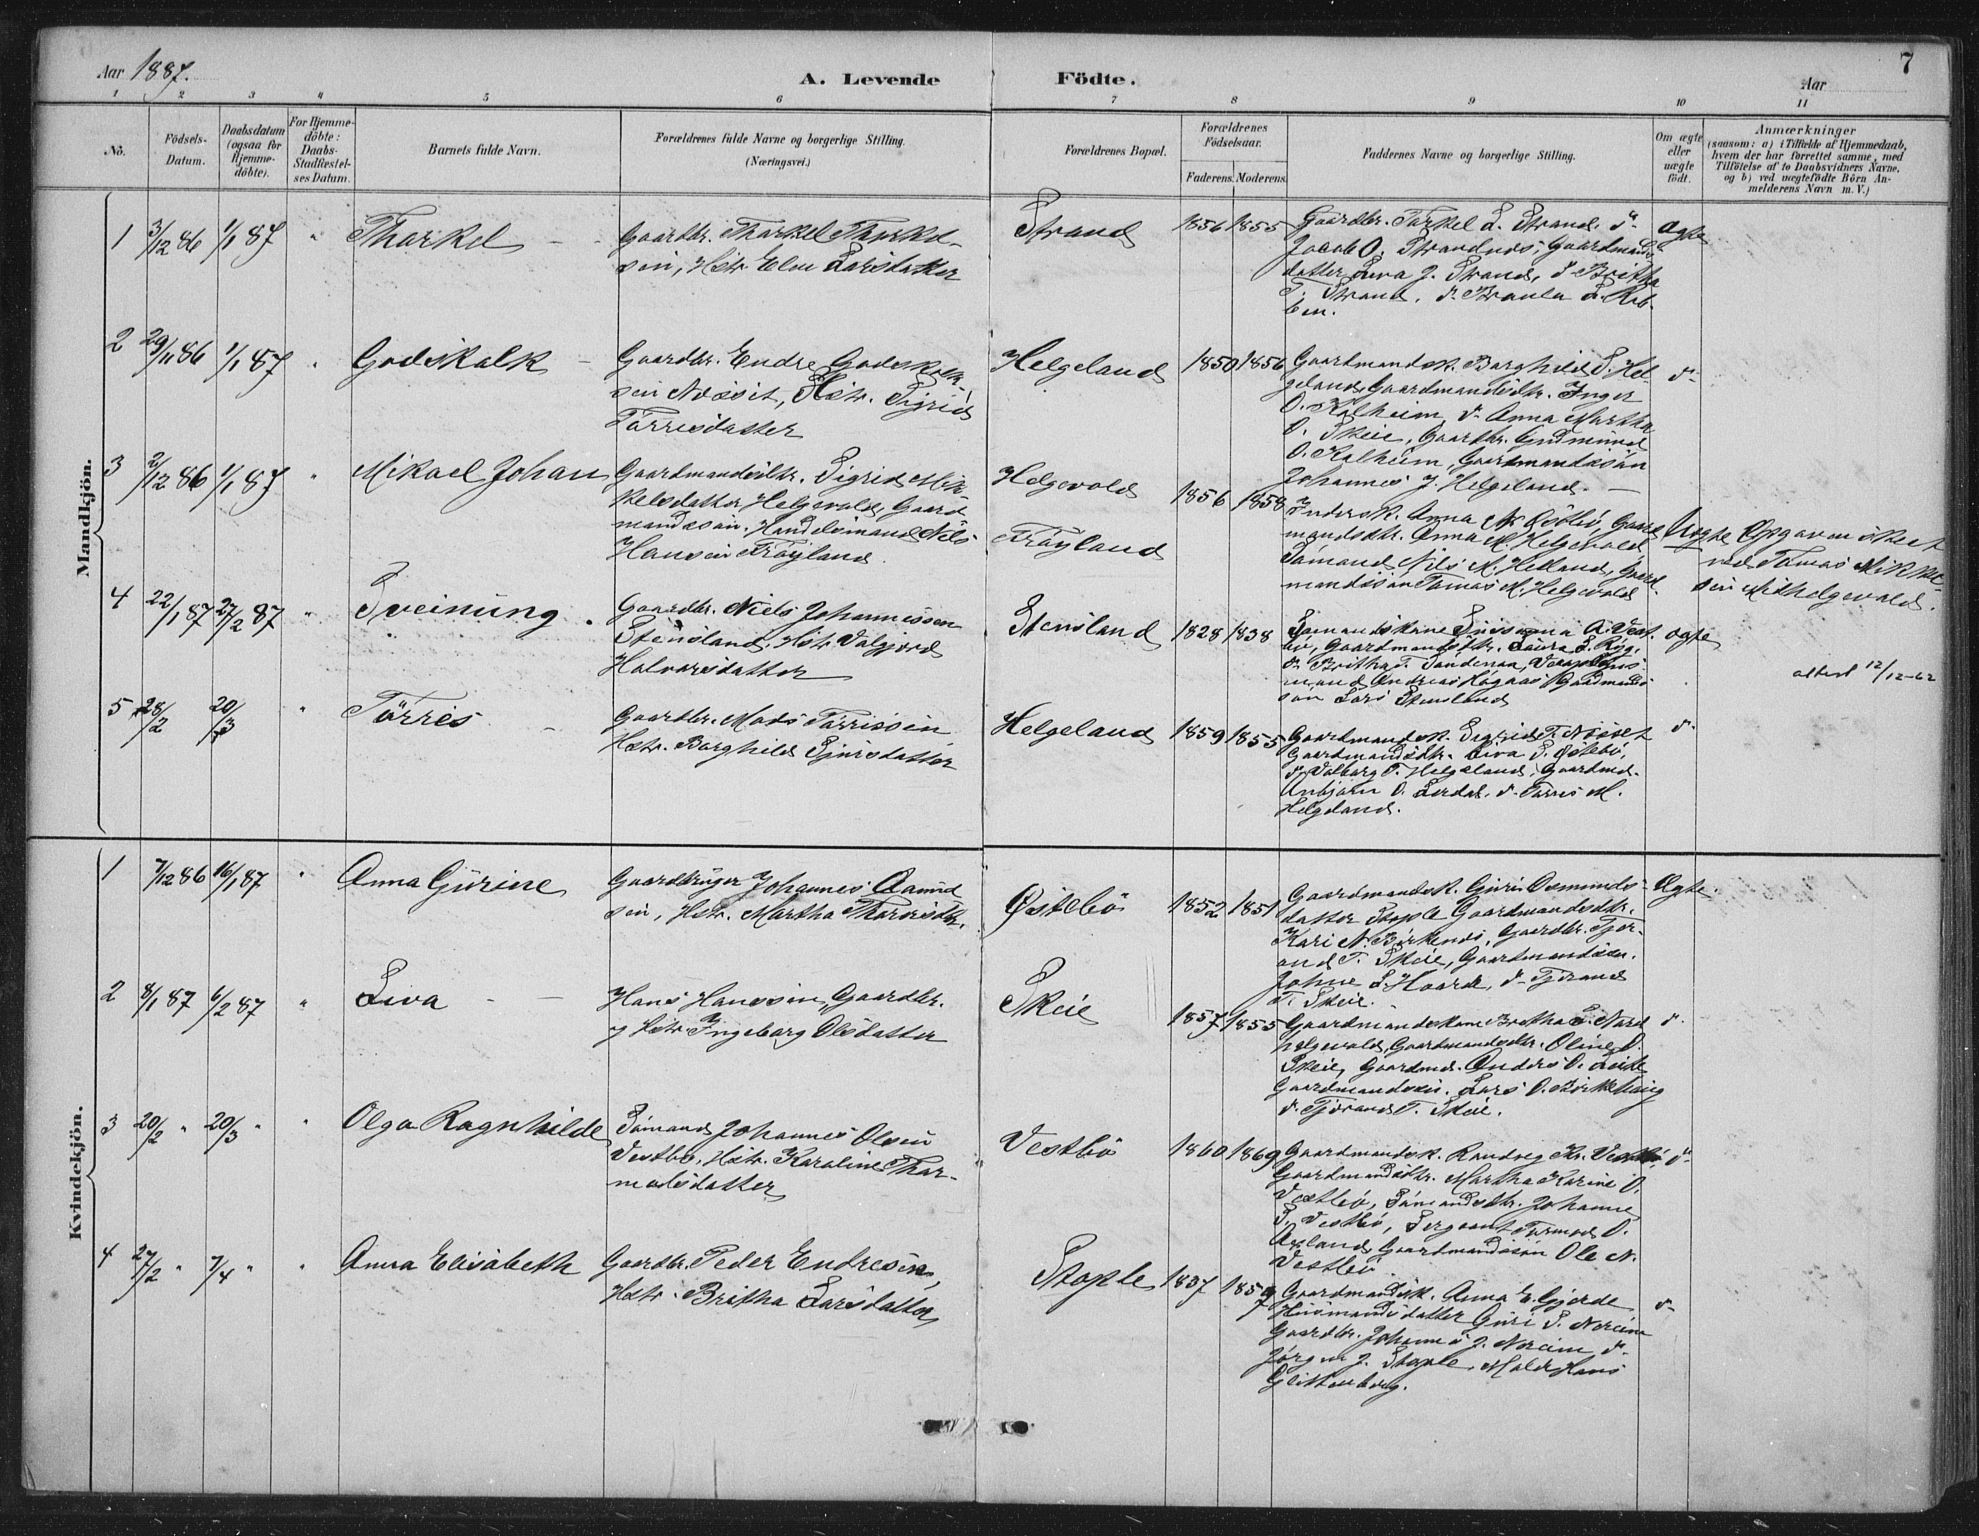 Aar 1887.
A. Levende Födte.
Aar
7
1 2 3 4 5 6 7 8 9 10 11
No.
Födsels-
Datum.
Daabsdatum
(ogsaa for
Hjemme-
döbte).
For Hjemme-
döbte:
Daabs-
Stadfæstel-
ses Datum.
Barnets fulde Navn.
Forældrenes fulde Navne og borgerlige Stilling.
(Næringsvei.)
Forældrenes Bopæl.
Forældrenes
Födselsaar.
Faderens. Moderens.
Faddernes Navne og borgerlige Stilling.
Om ægte
eller
uægte
födt.
Anmærkninger
(saasom: a) i Tilfælde af Hjemmedaab,
hvem der har forrettet samme, med
Tilföielse af to Daabsvidners Navne,
og b) ved uægtefödte Börn An-
melderens Navn m. V.)
Mandkjön.
1 3/12 86 1/1 87 " Tharkel
Gaardbr. Tharkel Tharkel-
sen, Hstr. Elen Larsdatter
Strand 1856 1855
Gaardbr. Tarkel L. Strand, d°
Jacob O. Strandnes, Gaardmands-
datter Siva J. Strand, d° Britha
T. Strand, d°
ægte
2 29/11 86 1/1 87 " Godskalk
Gaardbr. Endre Godskalk-
sen Nösset, Hstr. Sigrid
Törrisdatter
Helgeland 1850 1856
Gaardmandsk. Borghild S. Hel-
geland, Gaardmandsdtr. Inger
O. Kalheim, d° Anna Martha
O. Skeie, Gaardbr. Gudmund
O. Kalheim, Gaardmandssön
Johannes J. Helgeland.
d°
3 2/12 86 1/1 87 " Mikael Johan
Gaardmandsdtr. Sigrid Mik-
kelsdatter Helgevold, Gaard-
mandssön, Handelsmand Nils
Hansen Fröyland.
Helgevold
Fröyland
1856 1858
Indersk. Anna M. Östbö, Gaard-
mandsdtr. Anna M. Helgevold
Sömand Nils M. Helland, Gaard-
mandssön Tomas M. Helgevold
Uægte
Opgaven sikret
ved Tomas Mikkel-
sen Mithelgevold.
4 22/1 87 27/2 87 " Sveinung
Gaardbr. Niels Johannessen
Stensland, Hstr. Valgjerd
Halvarsdatter
Stensland 1828 1838
Sömandskone Susanna A. Vest-
bö, Gaardmandsdtr. Laura S. Ryg,
d° Britha T. Sandenaa,
mand Andreas Högaas, Gaardmands-
sön Lars Stensland
ægte
attest 12/12-62
5 28/2 20/3 " Törres
Gaardbr. Mads Törrissen
Hstr. Borghild Sjursdatter
Helgeland 1859 1855
Gaardmandsk. Sigrid T. Nösset
Gaardmandsdtr. Siva S. Östebö,
d° Valborg T. Helgeland, Gaardmd.
Anbjörn O. Lerdal, d° Törres M.
Helgeland.
d°
Kvindekjön.
1 7/12 86 16/1 87 " Anna Gurine
Gaardbruger Johannes Aamund-
sen, Hstr. Martha Tharesdtr.
Østebö 1852 1851
Gaardmandsk. Guri Osmunds-
datter Stople Gaardmandsdtr.
Kari N. Birkenes, Gaardbr. Tjer-
and T. Skeie, Gaardmandssön
Johne S. Hoarde, d° Tjerand
T. Skeie.
Ægte.
2 8/1 87 6/2 87 " Siva
Hans Hanssen, Gaardbr.
og Hstr. Ingeborg Olsdatter
Skeie 1857 1855
Gaardmandskone Britha S. Nord-
helgevold, Gaardmandsdtr. Oline O.
Skeie, Gaardmd. Anders O. Leite
Gaardmandssön. Lars O. Birkehaug
d° Tjerand T. Skeie.
d°
3 20/2 " 20/3 " " Olga Ragnhilde
Sömand Johannes Olsen
Vestbö, Hstr. Karoline Thor-
modsdatter
Vestbö 1860 1869
Gaardmandsk. Randveg Kr. Vestbö,
Gaardmandsdtr. Martha Karine O.
Vestbö, Sömandsdtr. Johanne
S. Vestbö, Sergeant Tormod O.
Öxland, Gaardmandssön Ole N.
Vestbö
d°
4 27/2 " 7/4 " " Anna Elisabeth
Gaardbr. Peder Endresen,
Hstr. Britha Larsdatter
Stople 1837 1857
Gaardmandsk. Anna E. Gjerde
Husmandsdatter Guri S. Nereim
Gaardbr. Johannes J. Nereim d°
Jörgen J. Stople, Maler Hans
Glittenberg.
d°